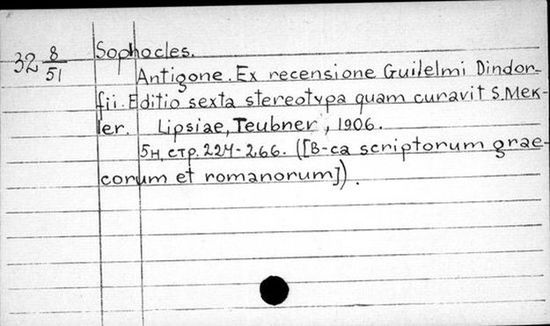 32 8/51
Sophocles.
Antigone. Ex recensione Guilelmi Dindor-
fii. Editio sexta stereotypa quam curavit S. Mek-
ler. Lipsiae, Teubner, 1906.
5н, стр. 227-266. ([B-ca scriptorum grae-
corum et romanorum]).